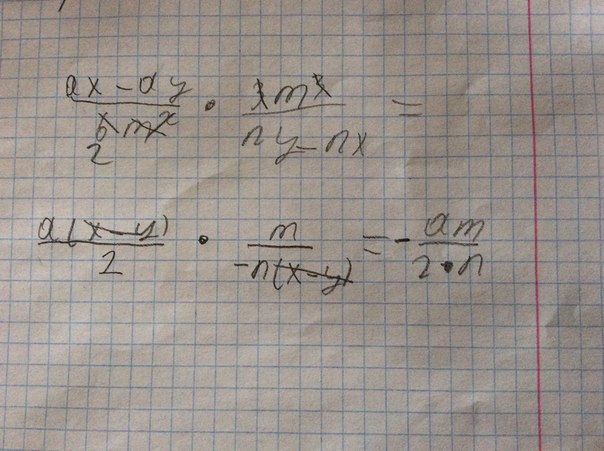 (ax - ay)/(6m²) · (3m³)/(ny - nx) =
2
a(x - y)/2 · m/(-n(x - y)) = - am/(2 · n)